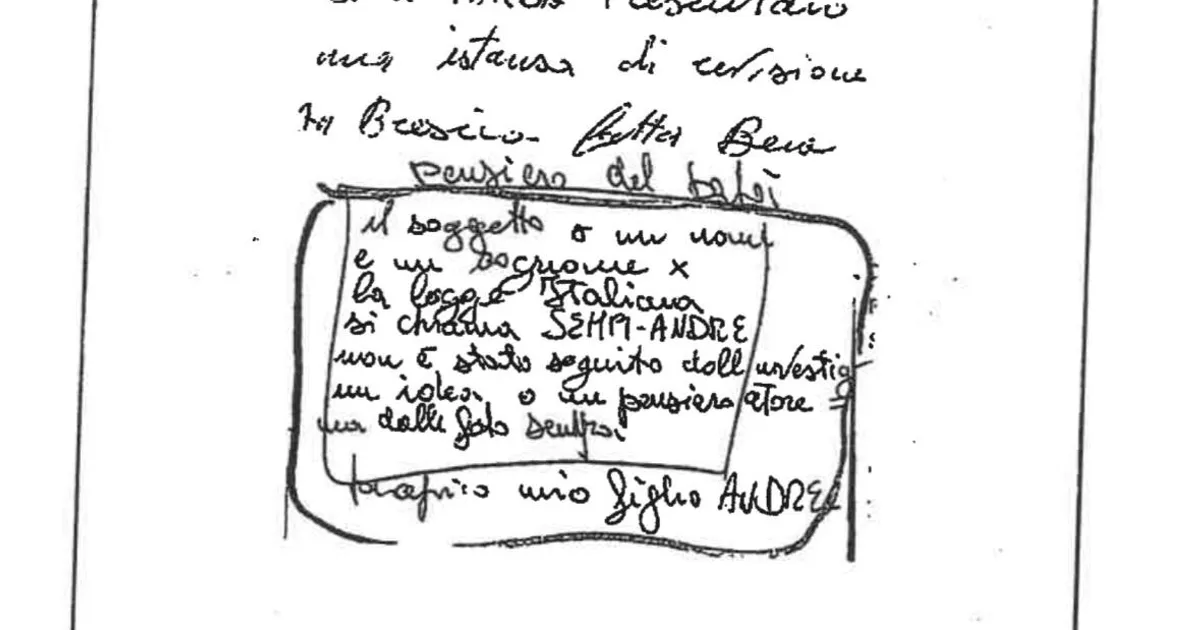 presentano
una istansa di revisione
Brescia fatta Bene
pensiero del papà
il soggetto o un nome
e un cognome x
la legge Italiana
si chiama SEMPI-ANDRE
non è stato seguito dall investig
un idea o un pensiero atore =
ma dalle foto sembra
proprio mio figlio ANDREA